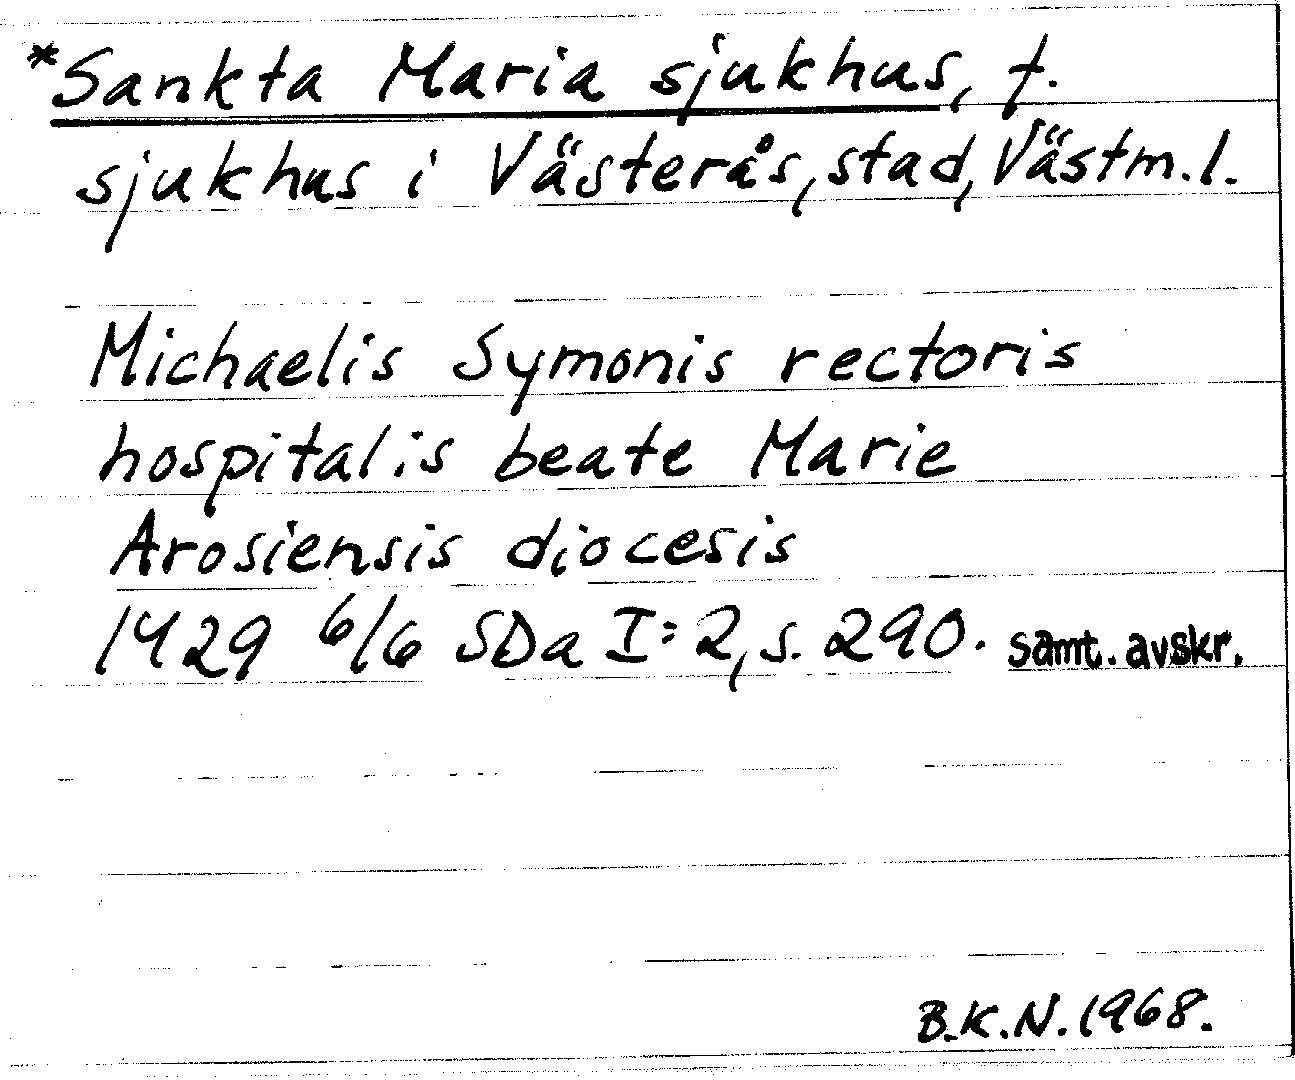 *Sankta Maria sjukhus, f.
sjukhus i Västerås, stad, Västm.l.
Michaelis Symonis rectoris
hospitalis beate Marie
Arosiensis diocesis
1429 6/6 SDa I:2, s. 290. samt. avskr.
B.K.N. 1968.